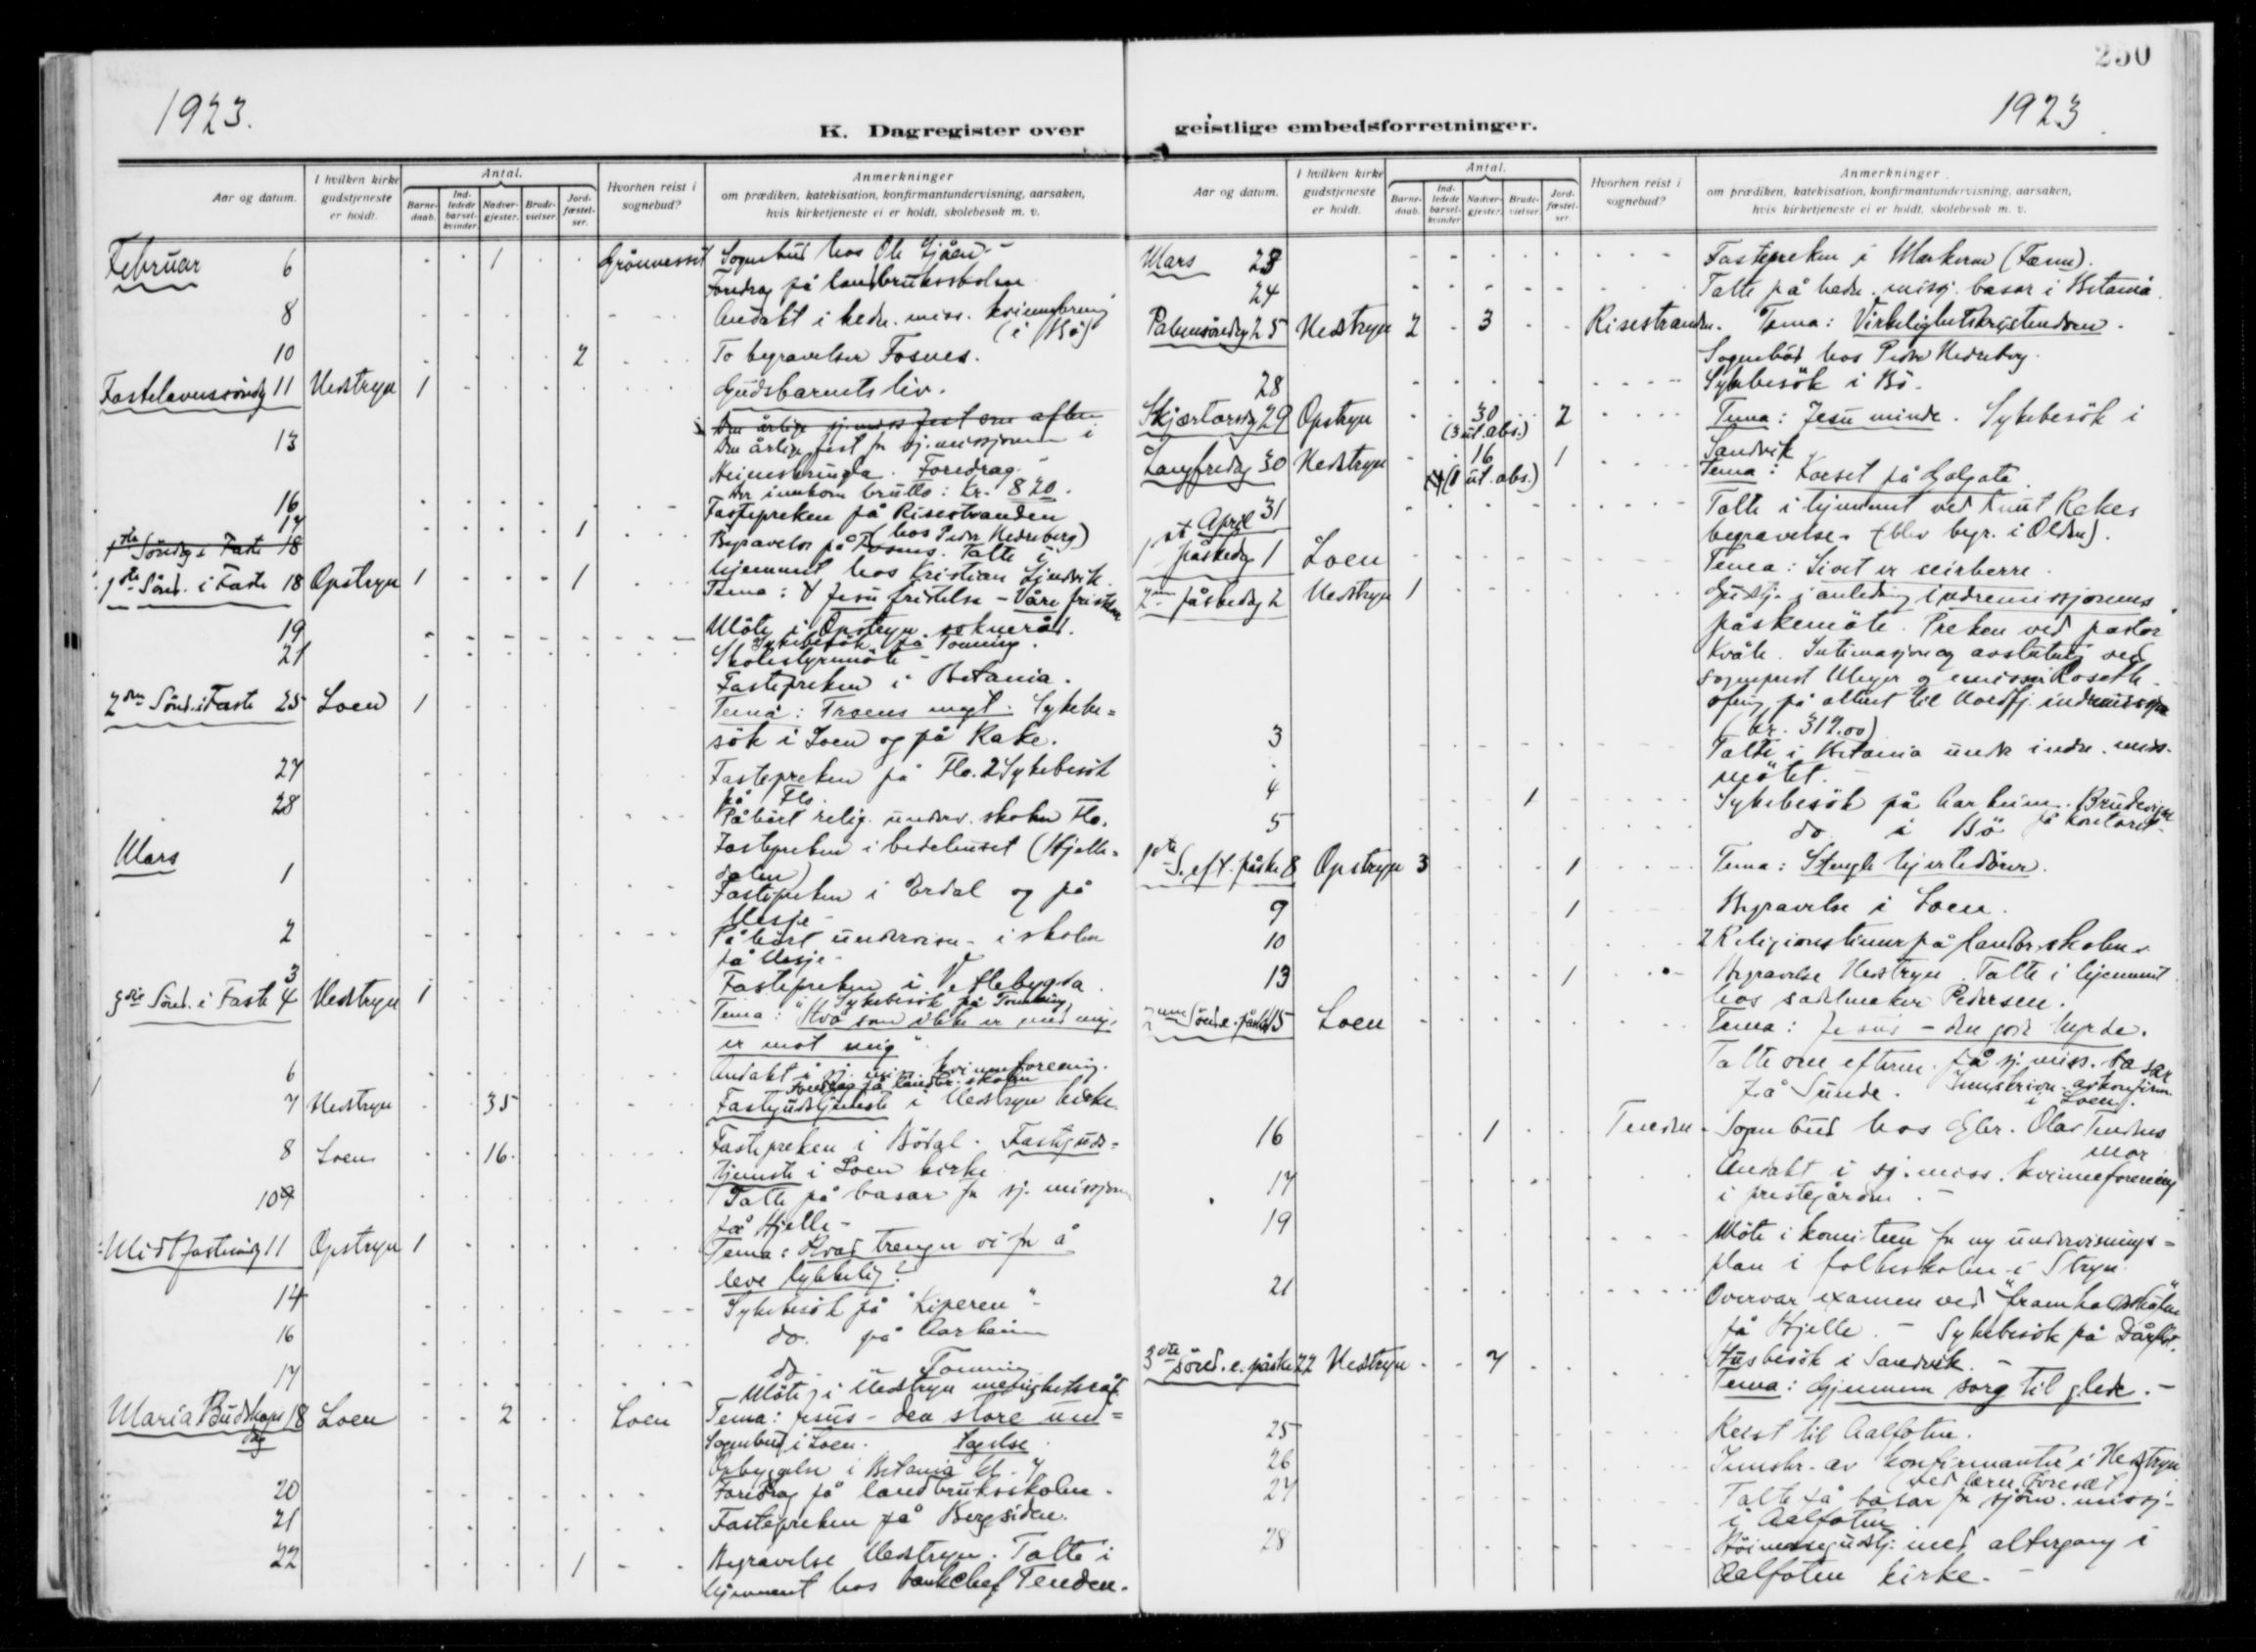 250
1923.
1923
K. Dagregister over
geistlige embedsforretninger.
Aar og datum.
I hvilken kirke gudstjeneste er holdt.
Antal.
Barne-daab.
Ind-ledede barsel-kvinder.
Nadver-gjester.
Brude-vielser.
Jord-fæstel-ser.
Hvorhen reist i sognebud?
Anmerkninger
om prædiken, katekisation, konfirmantundervisning, aarsaken,
hvis kirketjeneste ei er holdt, skolebesøk m. v.
Februar 6 1 Sognebud hos Ole
Foredrag på landbruksskolen
8 Andakt i hedn. miss. kvinneforening
(i Bö)
10 2 To begravelser Fosnes.
Fastelavenssöndg 11 Nedstryn 1 Gudsbarnets liv.
13 Den årlige fest for sj. missjonen i
Heimskringla. Foredrag.
Der innkom brutto: Kr. 820.
16 Fastepreken på Risestranden
17 1 (hos Peder Hedreberg)
1ste Söndag i Faste 18
Begravelse på Fosnes. Talte i
hjemmet hos Kristian
1ste Sönd. i Faste 18 Opstryn 1 1 Tema: Jesu fristelse - Våre fristelser
19 Möte i Opstryn sokneråd.
Sykebesök på Tonning.
21 Skolestyremöte -
Fastepreken i Betania.
2den Sönd. i Faste 25 Loen 1 Tema: Troens magt. Sykebe=
sök i Loen og på Rake.
27 Fastepreken på Flo. 2 Sykebesök
på Flo.
28 Påhört relig. underv. skolen Flo.
Fastepreken i bedehuset (Hjelle=
dalen)
Mars 1 Fastepreken i Erdal og på
Mesje -
2 Påhört undervisn. i skolen
på Mesje -
3 Fastepreken i Vetlebygda.
Sykebesök på Tonning
3die Sönd. i Faste 4 Nedstryn 1 Tema: "Hvo som ikke er med mig,
er mot mig".
6 Andakt i sj. miss. kvinneforening.
Foredrag på landbr. skolen
7 Nedstryn 35 Fastegudstjeneste i Nedstryn kirke.
8 Loen 16. Fastepreken i Bödal. FastegudS=
tjeneste i Loen kirke
10 Talte på basar for sj. missjonen
på Hjelle -
Midtfastesöndg 11 Opstryn 1 Tema: Hvad trenger vi for å
leve lykkelig?
14 Sykebesök på "Kiperen" -
16 do. på Aarheim
17 do. " Tonning
Möte i Nedstryn menighetsråd.
Maria Budskaps dag 18 Loen 2 Loen Tema: Jesus - den store und=
Sognebud i Loen. sagelse
Opbyggelse i Betania kl. 7
20 Foredrag på landbruksskolen.
21 Fastepreken på Bergsiden.
22 1 Begravelse Nedstryn. Talte i
hjemmet hos bankchef Tenden.
Aar og datum.
I hvilken kirke gudstjeneste er holdt.
Antal.
Barne-daab.
Ind-ledede barsel-kvinder.
Nadver-gjester.
Brude-vielser.
Jord-fæstel-ser.
Hvorhen reist i sognebud?
Anmerkninger
om prædiken, katekisation, konfirmantundervisning, aarsaken,
hvis kirketjeneste ei er holdt, skolebesøk m. v.
Mars 23 Fastepreken i Markene
24 Talte på hedn. misj. basar i Betania.
Palmesöndag 25 Nedstryn 2 3 Risestranden. Tema: Virkelighetskristendom.
Sognebud hos Peder Hedreberg.
28 Sykebesök i Bö.
Skjærtorsdg 29 Opstryn 30 (3 ut. abs.) 2 Tema: Jesu minde. Sykebesök i
Sandvik
Langfredag 30 Nedstryn 16 (1 ut. abs.) 1 Tema: Korset på Golgata.
31 Talte i hjemmet ved Knut Rakes
begravelse. (blev begr. i Olden).
April
1ste påskedag 1 Loen Tema: Livet er seirherre.
2den påskedag 2 Nedstryn 1 Gudstj. i anledning indremissjonens
påskemöte. Preken ved pastor
Kvåle. Intimasjon og avslutning ved
sogneprest Meyer og emissær Roseth
ofring på alteret til Nordfj. indremissjon
(kr. 312.00)
3 Talte i Betania under indre. miss.
mötet.
4 1 Sykebesök på Aarheim. Brudevigsel
på kontoret
5 do i Bö
1ste S. eft. påske 8 Opstryn 3 1 Tema: Stengte hjertedörer.
9 1 Begravelse i Loen.
10 2 Religionstimer på landbr. skolen.
13 1 Begravelse Nedstryn. Talte i hjemmet
hos sadelmaker Pedersen.
2den Sönd. e. påske 15 Loen Tema: Jesus - den gode hyrde.
Talte om efterm. på sj. miss. basar
på Sunde. Innskrivn. av konfirm.
i Loen.
16 1 Tenden Sognebud hos Olav Tendens
mor
17 Andakt i sj. miss. kvinneforening
i prestegården. -
19 Möte i komiteen for ny undervisnings=
plan i folkeskolen i Stryn.
21 Overvar examen ved "framhaldsskolen"
på Hjelle. - Sykebesök på
Husbesök i Sandvik. -
3die Sönd. e. påske 22 Nedstryn 7 Tema: Gjennem sorg til glede. -
25 Reist til Aalfoten.
26 Innskr. av konfirmanter i Nedstryn
ved lærer
27 Talte på basar for sjöm. missj.
i Aalfoten
28 Höimessegudstj. med altergang i
Aalfoten kirke. -